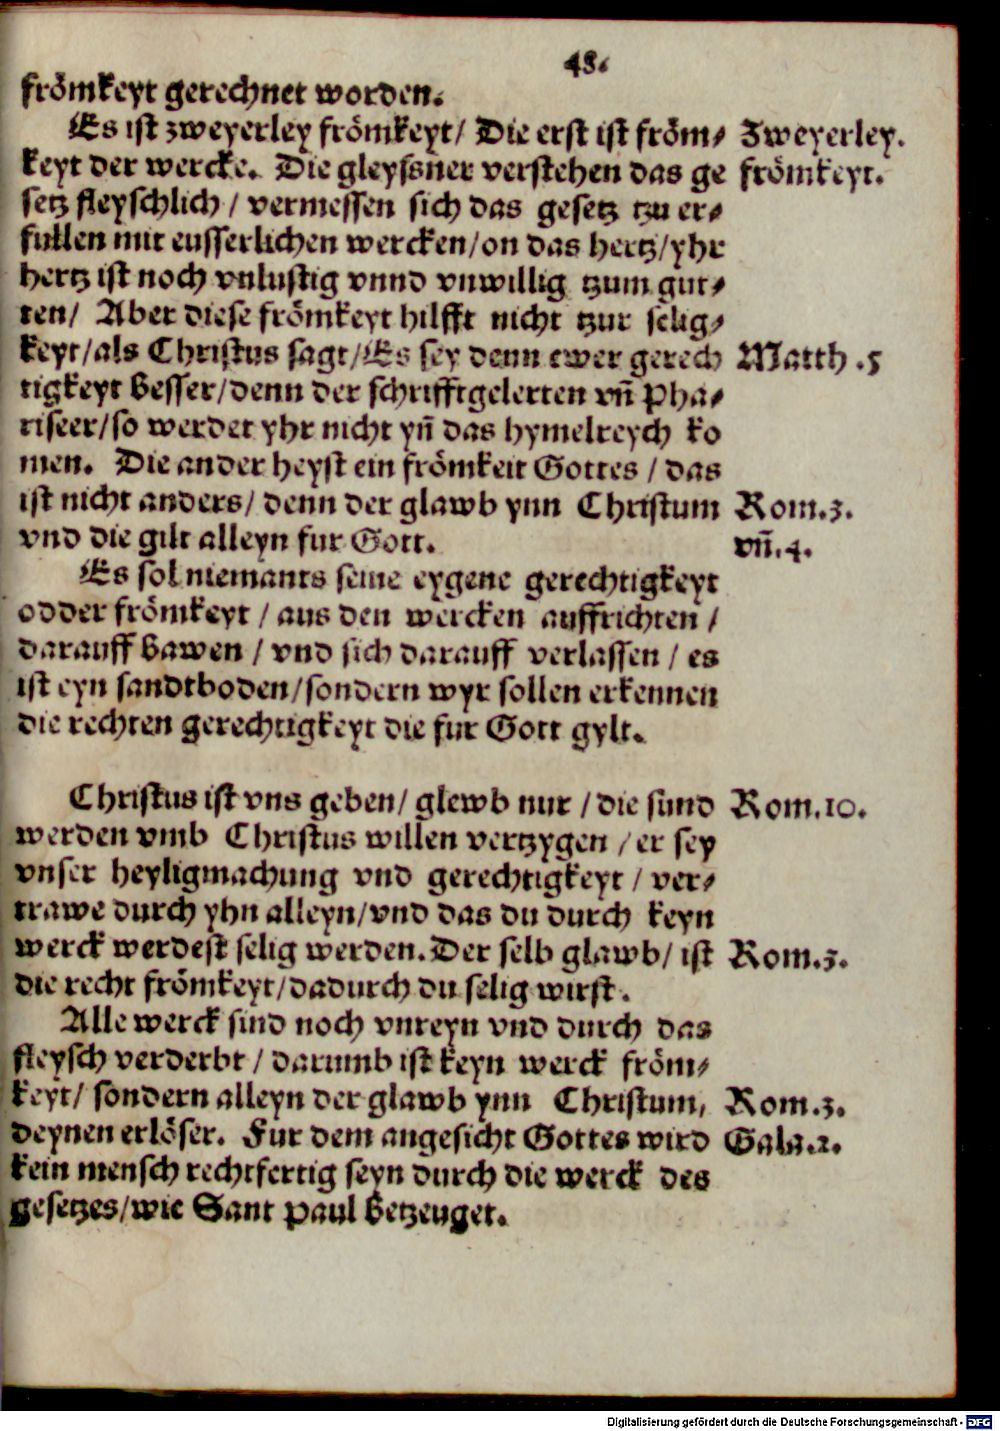 48.
frömkeyt gerechnet worden.
Es ist zweyerley frömkeyt/ Die erst ist fröm⸗ Zweyerley.
keyt der wercke. Die gleyssner verstehen das ge frömkeyt.
setz fleyschlich / vermessen sich das gesetz tzu er⸗
fullen mit eusserlichen wercken/on das hertz/yhr
hertz ist noch vnlustig vnnd vnwillig tzum gut⸗
ten/ Aber diese frömkeyt hilfft nicht tzur selig⸗
keyt/als Christus sagt/Es sey denn ewer gerech Matth .5
tigkeyt besser/denn der schrifftgelerten vn̄ Pha⸗
riseer/so werdet yhr nicht yn̄ das hymelreych ko
men. Die ander heyst ein frömkeit Gottes / das
ist nicht anders/ denn der glawb ynn Christum Rom.3.
vnd die gilt alleyn fur Gott. vn̄.4.
Es sol niemants seine eygene gerechtigkeyt
odder frömkeyt / aus den wercken auffrichten /
darauff bawen / vnd sich darauff verlassen / es
ist eyn sandtboden/sondern wyr sollen erkennen
die rechten gerechtigkeyt die fur Gott gylt.
Christus ist vns geben/ glewb nur / die sund Rom.10.
werden vmb Christus willen vertzygen / er sey
vnser heyligmachung vnd gerechtigkeyt / ver⸗
trawe durch yhn alleyn/vnd das du durch keyn
werck werdest selig werden. Der selb glawb/ ist Rom.3.
die recht frömkeyt/dadurch du selig wirst.
Alle werck sind noch vnreyn vnd durch das
fleysch verderbt / darumb ist keyn werck fröm⸗
keyt/ sondern alleyn der glawb ynn Christum, Rom.3.
deynen erlöser. Fur dem angesicht Gottes wird Gala.2.
kein mensch rechtfertig seyn durch die werck des
gesetzes/wie Sant Paul betzeuget.
Digitalisierung gefördert durch die Deutsche Forschungsgemeinschaft - DFG